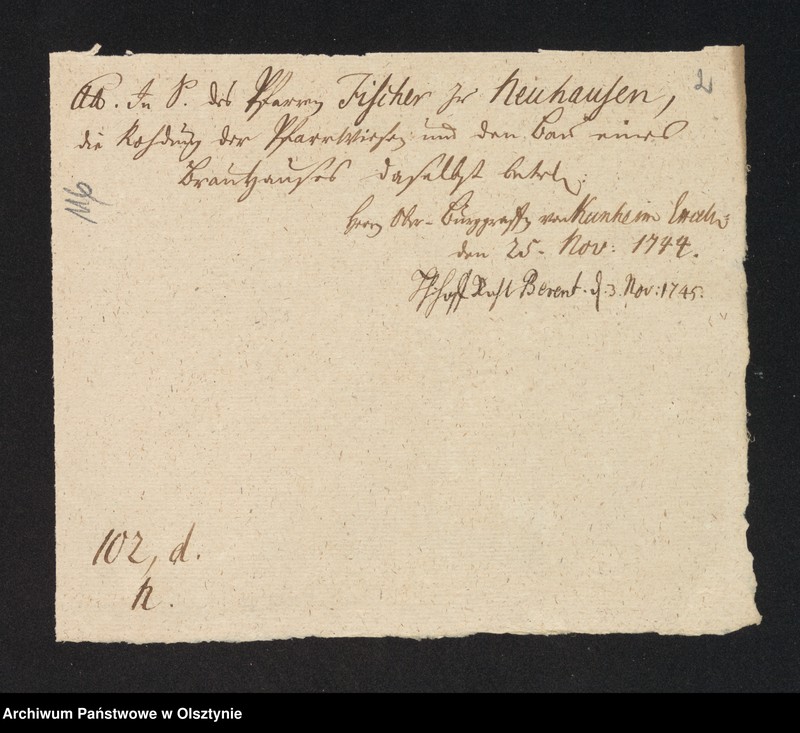 Act. In S. des Pfarren Fischer zu Neuhausen,
2
die Rohdung der Pfarrwiesen und den Bau eines
Brauhauses daselbst betr.
116
Herrn Ober-Burggraffen von Kunheim Excell:
den 25. Nov: 1744.
Berent. d. 3. Nov: 1745.
102, d.
n.
Archiwum Państwowe w Olsztynie